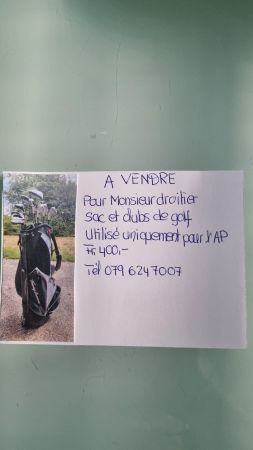 A VENDRE
Pour Monsieur droitier
sac et clubs de golf
Utilisé uniquement pour l'AP
Fr 400.-
Tél 079 6247007